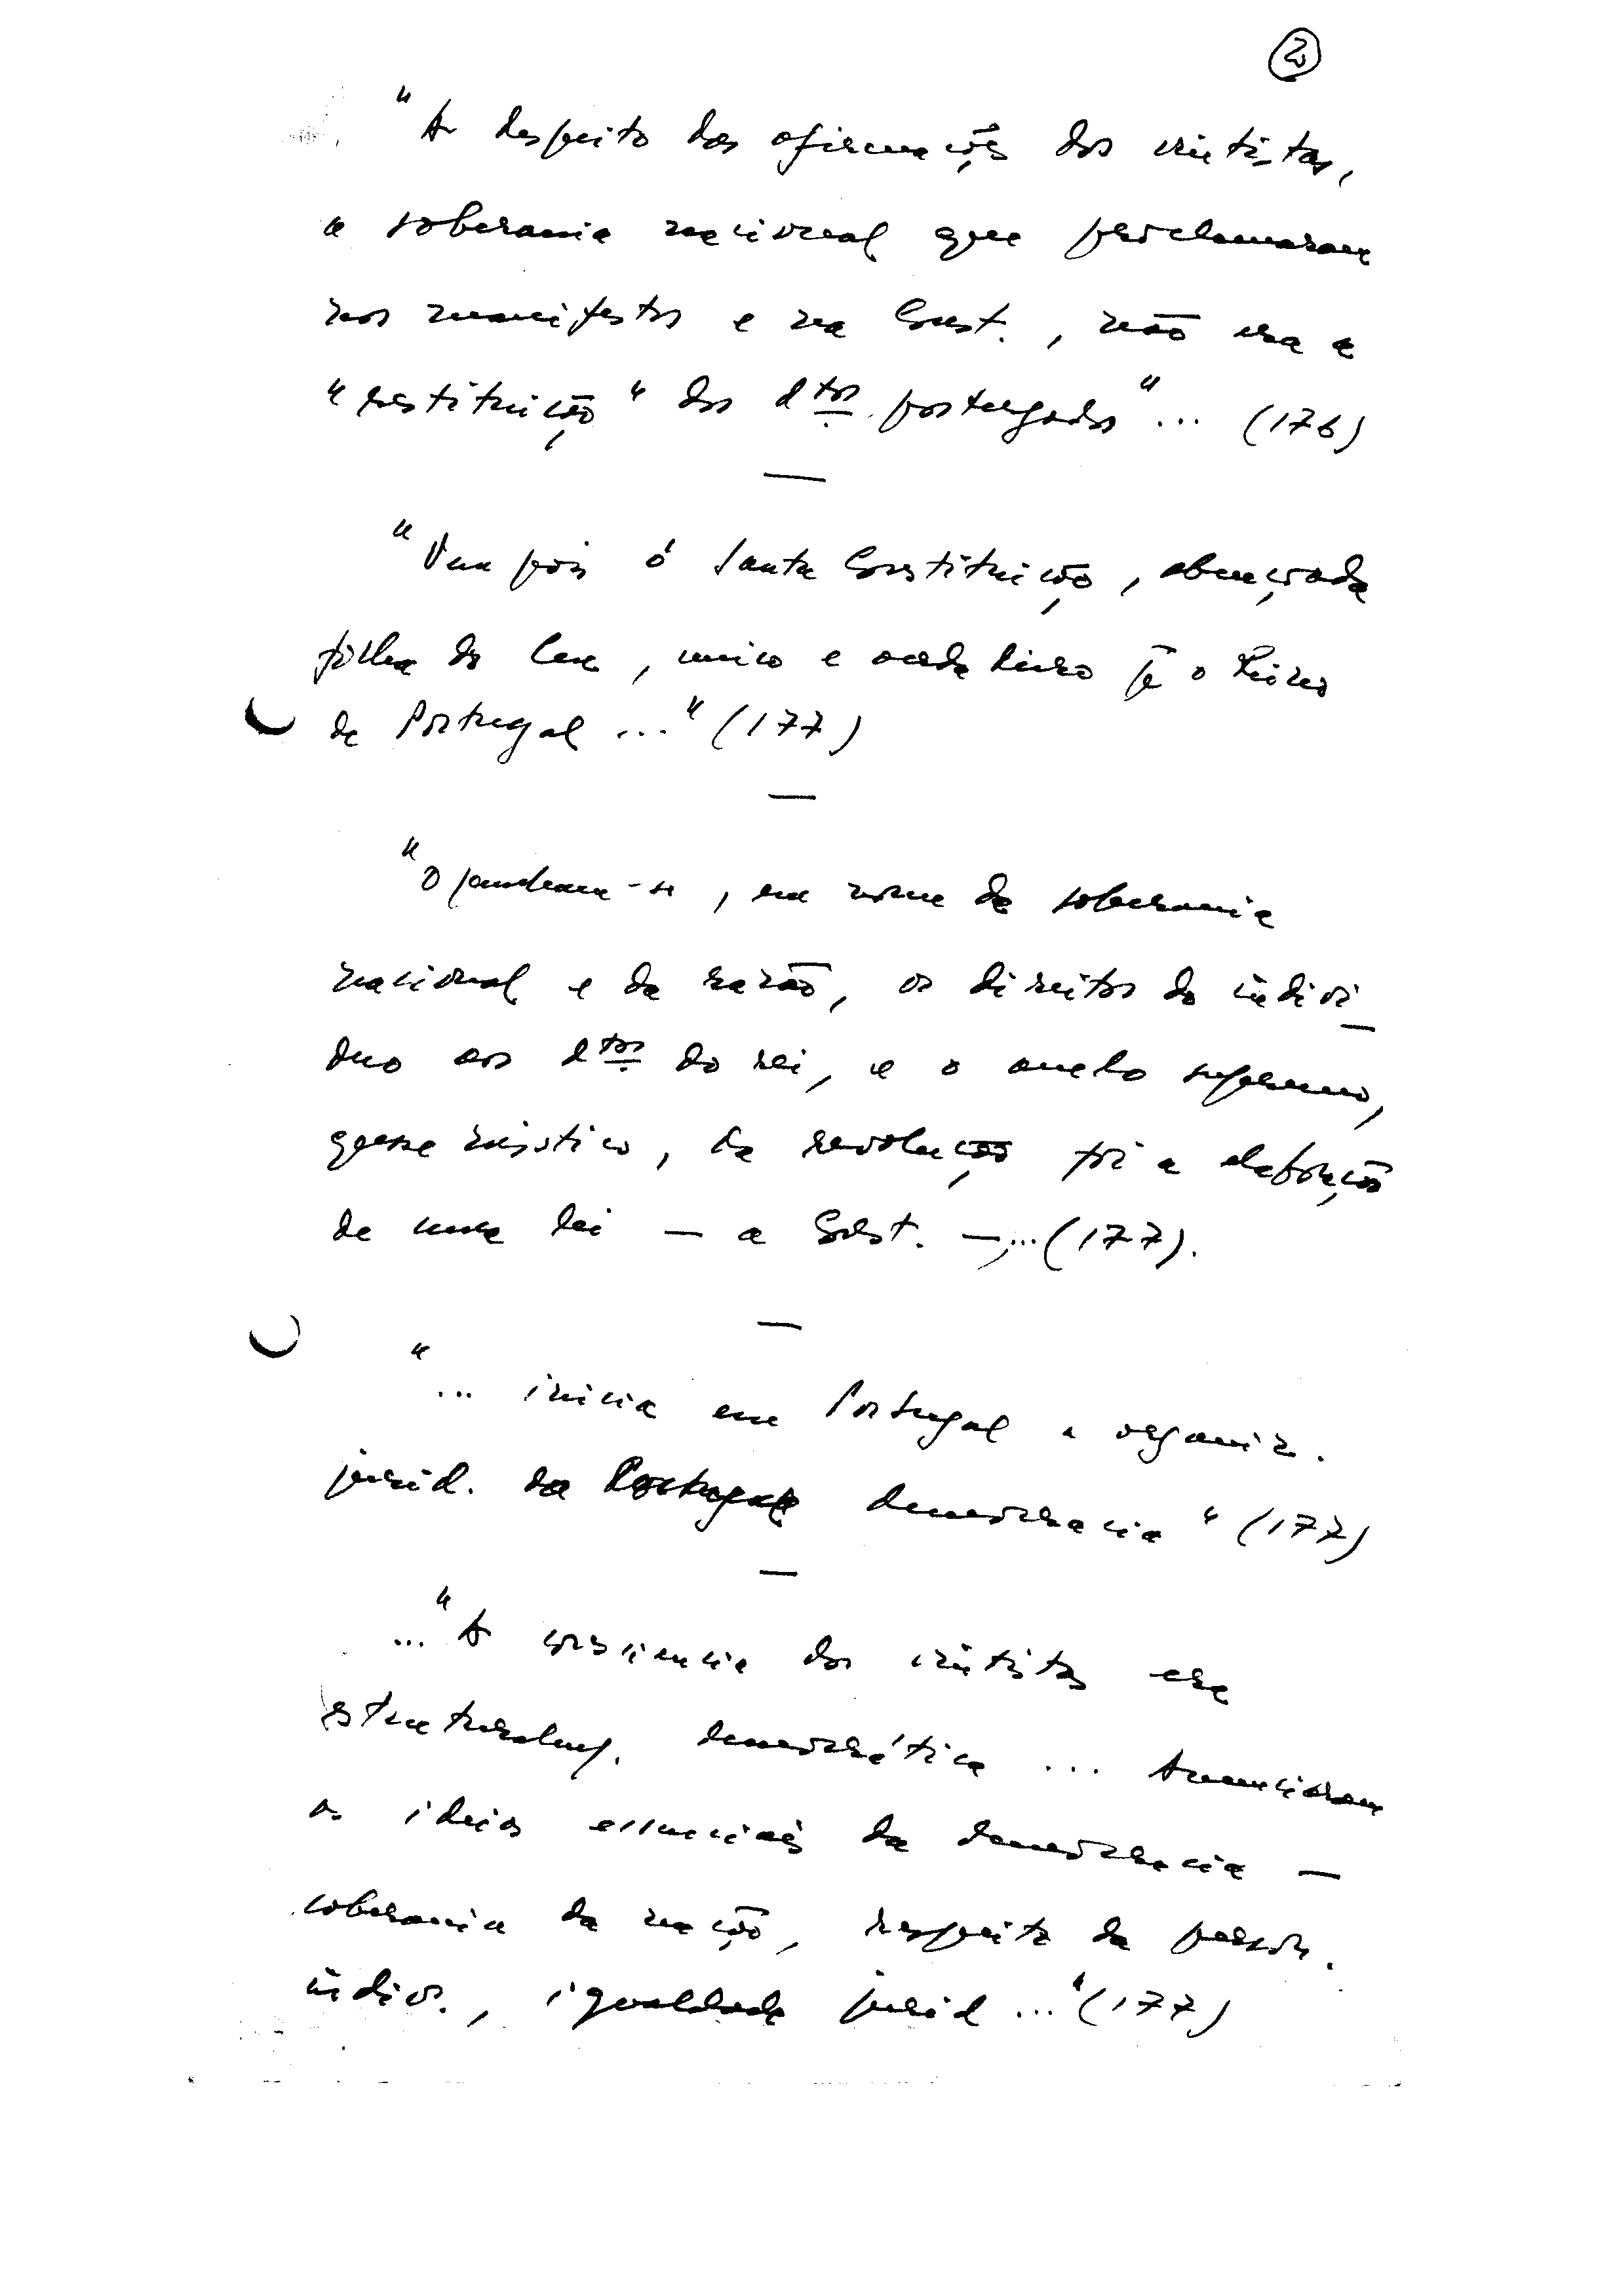 2
"A despeito das afirmações dos vintistas,
a soberania nacional que proclamaram
nos manifestos e na Const., não era a
"restituição" dos dtos. postergados"... (176)
—
"Vem pois ó Santa Constituição, abençoada
filha do Ceu, unico e
de Portugal ..." (177)
—
"Opunham-se, em nome da soberania
nacional e da razão, os direitos do indiví-
duo aos dtos. do rei, e o anelo supremo,
quase místico, da revolução foi a elaboração
de uma lei — a Const. —,... (177).
—
"... inicia em Portugal a organiz.
juríd. da democracia" (177)
—
..."A consciencia dos vintistas era
estruturalmt. democrática ... Anunciaram
as ideias essenciais da democracia —
soberania da nação, respeito da person.
indiv., igualdade juríd ..." (177)